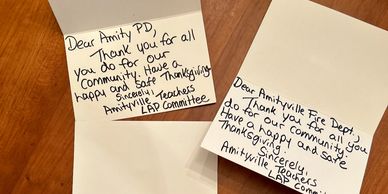 Dear Amity PD,
Thank you for all
you do for our
community. Have a
happy and safe Thanksgiving.
Sincerely,
Amityville Teachers
LAP Committee
Dear Amityville Fire Dept.,
Thank you for all you
do for our community.
Have a happy and safe
Thanksgiving.
Sincerely,
Amityville Teachers
LAP Commi